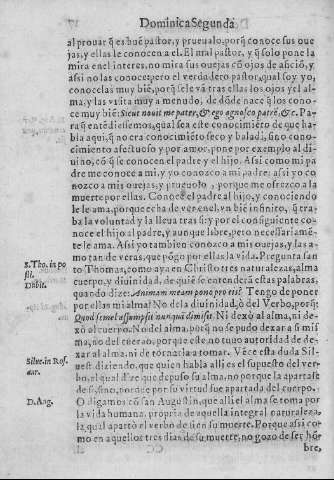 Dominica Segunda
al prouar q̃ es buẽ pastor, y prueualo, porq̃ conoce sus oue
jas, y ellas le conocen a el. El mal pastor, y q̃ solo pone la
mira en el interes, no mira sus ouejas cõ ojos de aficiõ, y
assi no las conoce; pero el verdadero pastor, qual soy yo,
conocelas muy biẽ, porq̃ se le vã tras ellas los ojos y el al
ma, y las visita muy a menudo, de dõde nace q̃ los cono-
ce muy biẽ: Sicut nouit me pater, & ego agnosco patrẽ, &c. Pa-
ra q̃ entẽdiessemos, qual sea este conocimiẽto de que ha-
bla aqui, q̃ no era conocimiẽto seco y baladi, sino cono-
cimiento afectuoso y por amor, pone por exemplo al di
uino, cõ q̃ se conocen el padre y el hijo. Assi como mi pa
dre me conoce a mi, y yo conozco a mi padre: assi yo co
nozco a mis ouejas, y prueuolo, porque me ofrezco a la
muerte por ellas. Conoce el padre al hijo, y conociendo
le le ama, porque echa de ver en el, vn biẽ infinito, q̃ tra-
ba la voluntad y la lleua tras si: y por el consiguiente co-
noce el hijo al padre, y aunque libre, pero necessariamẽ-
te le ama. Assi yo tambien conozco a mis ouejas, y las a-
mo tan de veras, que põgo por ellas la vida. Pregunta san
S. Tho. in po
to Thomas, como aya en Christo tres naturalezas, alma
stil.
cuerpo, y diuinidad, de quiẽ se entenderá estas palabras,
Dubit.
quando dize: Animam meam pono pro eis? Tengo de poner
por ellas mi alma? No de la diuinidad, o del Verbo, porq̃:
Quod semel assumpsit nunquã dimisit. Ni dexò al alma, ni de-
xò el cuerpo. No del alma, porq̃ no se pudo dexar a si mis
ma, no del cuerpo, porque este no tuuo autoridad de de-
xar al alma, ni de tornarla a tomar. Vẽce esta duda Sil-
Silue. in Ros.
uest. diziendo, que quien habla alli es el supuesto del ver-
aur.
bo, el qual dize que depuso su alma, no porque la apartasse
de si, sino, porque por su virtud fue apartada del cuerpo.
D. Aug.
O digamos cõ san Augustin, que alli el alma se toma por
la vida humana, propria de aquella integral naturaleza,
la qual apartò el verbo de si en su muerte. Porque assi co-
mo en aquellos tres dias de su muerte, no gozo de ser hõ
bre,